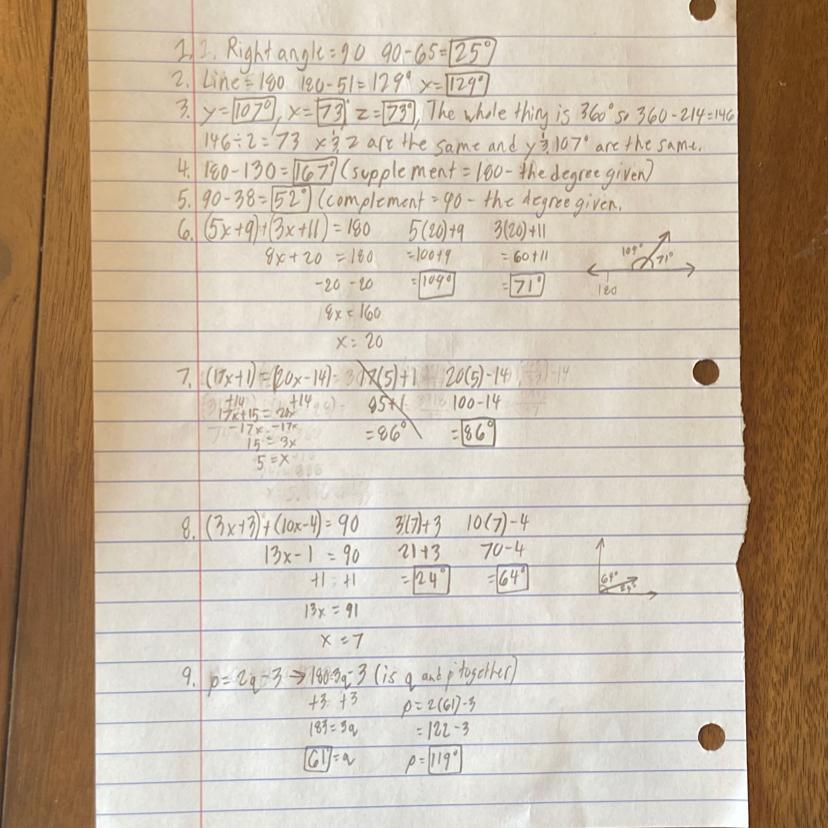 1. 1. Right angle = 90 90-65= 25°
2. Line = 180 180-51=129° x= 129°
3. y= 107°, x= 73° z= 73°, The whole thing is 360° so 360-214=146
146÷2=73 x & z are the same and y & 107° are the same.
4. 180-130= 167° (supplement = 180- the degree given)
5. 90-38= 52° (complement = 90 - the degree given.
6. (5x+9)+(3x+11)=180 5(20)+9 3(20)+11
8x+20 =180 =100+9 =60+11
-20 -20 =109° =71°
8x=160
x=20
109° 71°
180
7. (17x+1)=(20x-14)= 17(5)+1 20(5)-14
+14 +14 85+1 100-14
17x+15=20x
-17x -17x =86° =86°
15=3x
5=x
8. (3x+3)+(10x-4)=90 3(7)+3 10(7)-4
13x-1 =90 21+3 70-4
+1 +1 =24° =64°
13x=91
x=7
64° 24°
9. p=2q-3 → 180=3q-3 (is q and p together)
+3 +3 p=2(61)-3
183=3q =122-3
61=q p=119°